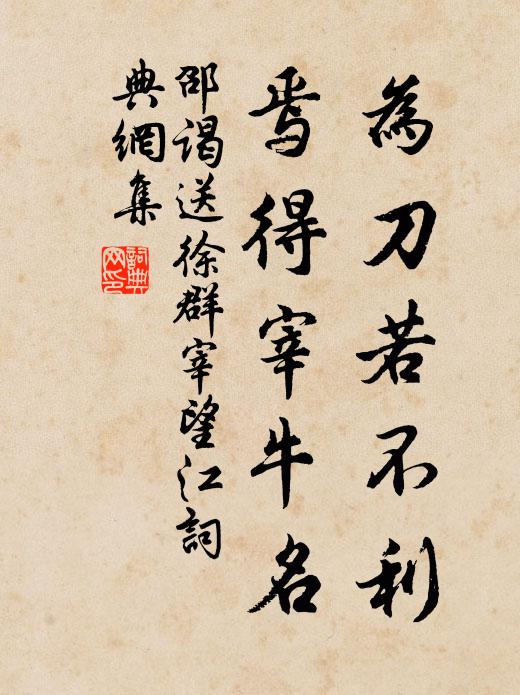 為刀若不利
焉得宰牛名
邵謁送徐群宰望江詞
典網集
詞典
网印